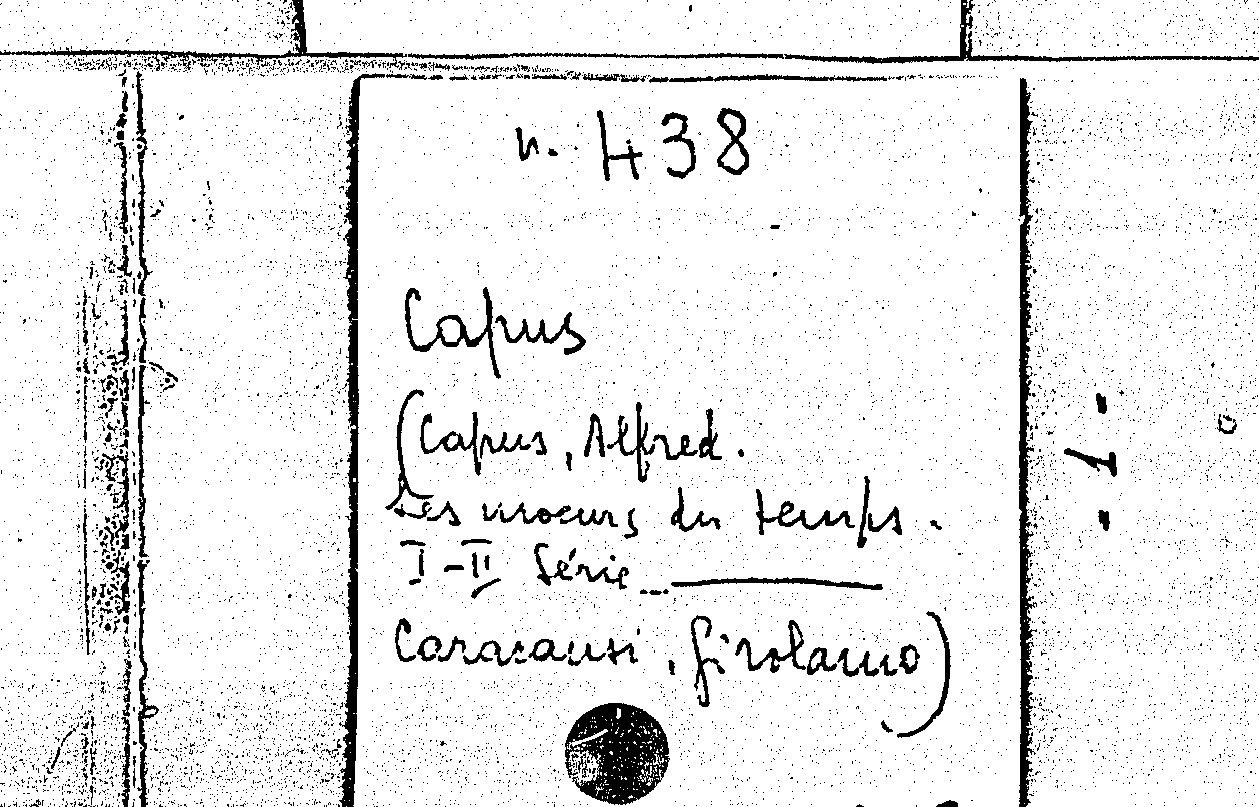 n. 438
Capus
(Capus, Alfred.
Les moeurs du temps.
I-II Série ...
Caracausi, Girolamo)
- 1 -